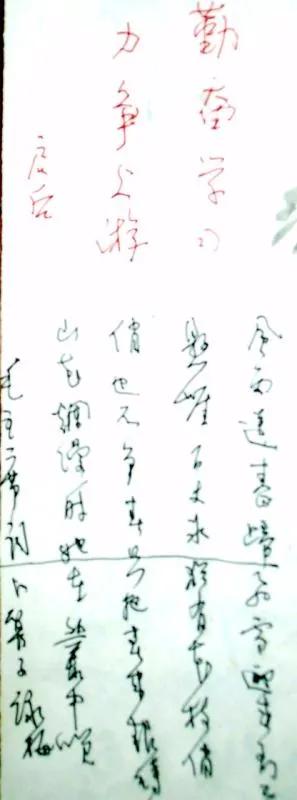 勤奮学习
力争上游
风雨送春歸飞雪迎春到已
悬崖百丈冰犹有花枝俏
俏也不争春只把春来报待
山花爛漫时她在丛中笑
毛主席词卜算子詠梅